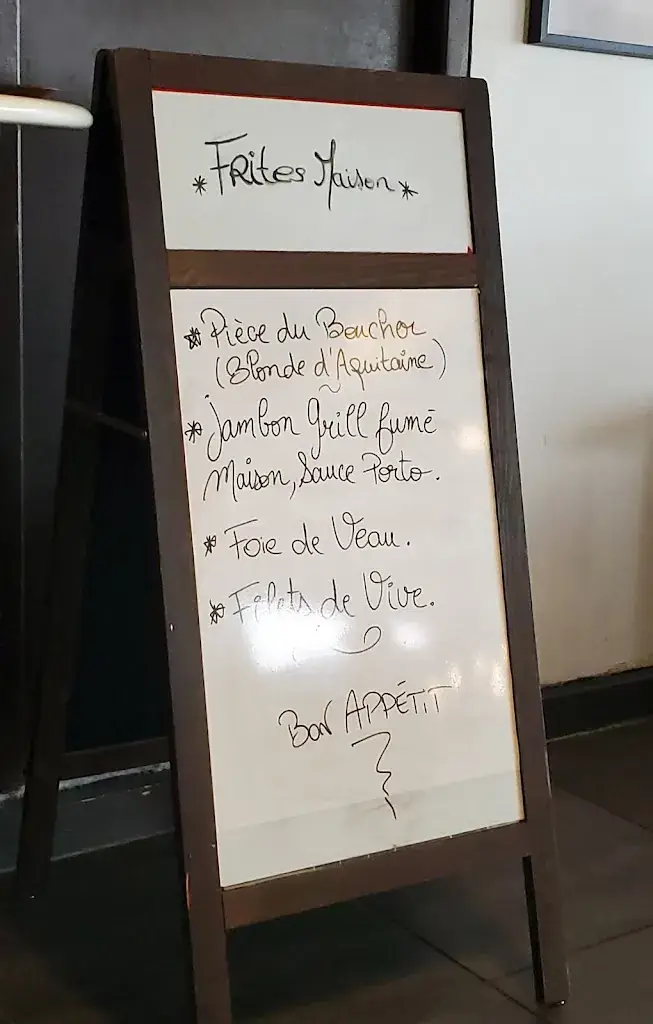 * FRites Maison *
* Pièce du Boucher
(Blonde d'Aquitaine)
* Jambon Grill fumé
Maison, Sauce Porto.
* Foie de Veau.
* Filets de Vive.
BON APPÉTIT